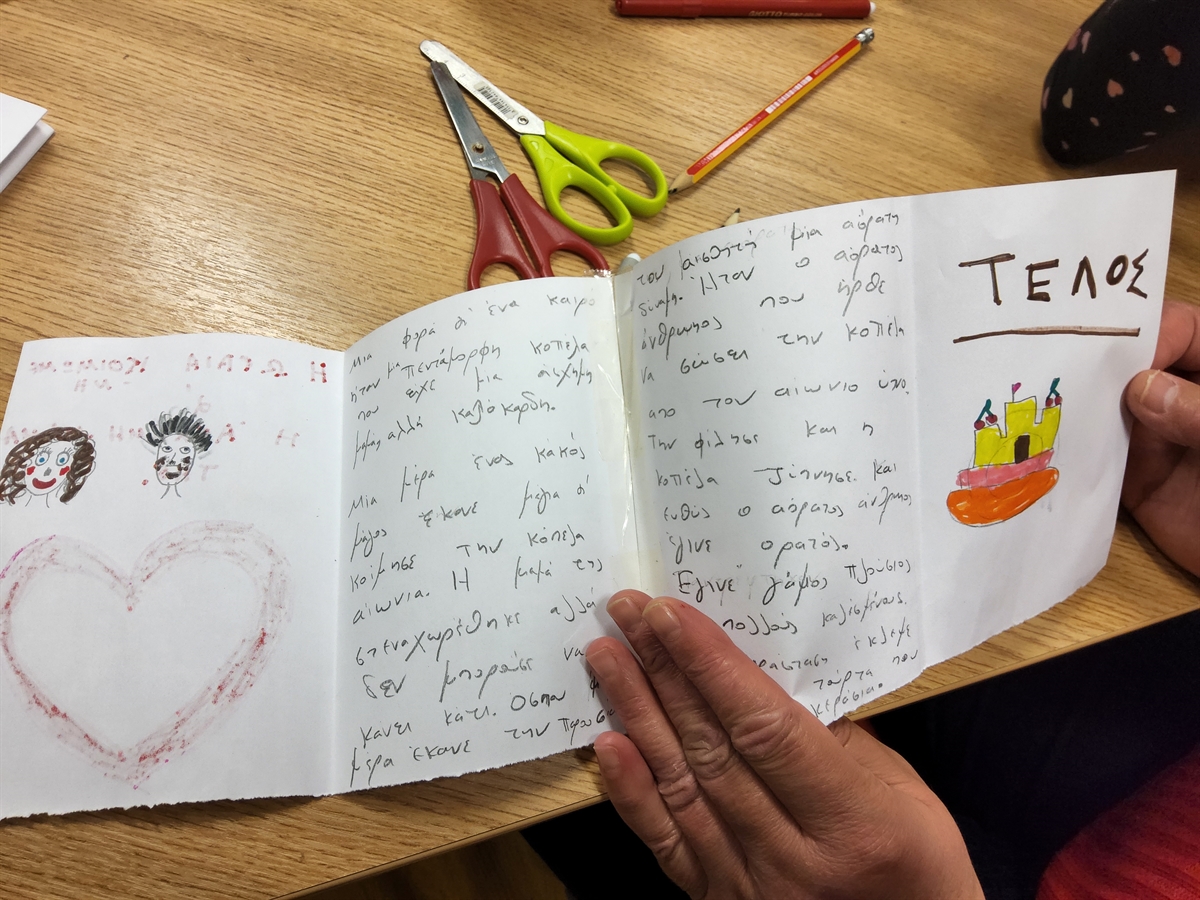 GIOTTO
Μια φορά κι ένα καιρό
ήταν μια πεντάμορφη κοπέλα
που είχε μια άσχημη
αλλά καλόκαρδη.
Μια μέρα ένας κακός
μάγος έκανε μάγια κι
κοίμησε την κοπέλα
αιωνια. Η μαμά της
στεναχωρέθηκε αλλά
δεν μπορούσε να
κανει κάτι. Οσπου
μέρα έκανε την
του μια αόρατη
δύναμη. Ήταν ο αόρατος
άνθρωπος που ήρθε
να σώσει την κοπέλα
απο τον αιωνιο ύπνο.
Την φίλησε και η
κοπέλα ξύπνησε και
ευθύς ο αόρατος άνθρωπος
έγινε ορατός.
Έγινε γάμος πλούσιος
πολλούς καλεσμένους.
παράσταση έκλεψε
τούρτα που
κεράσια.
ΤΕΛΟΣ